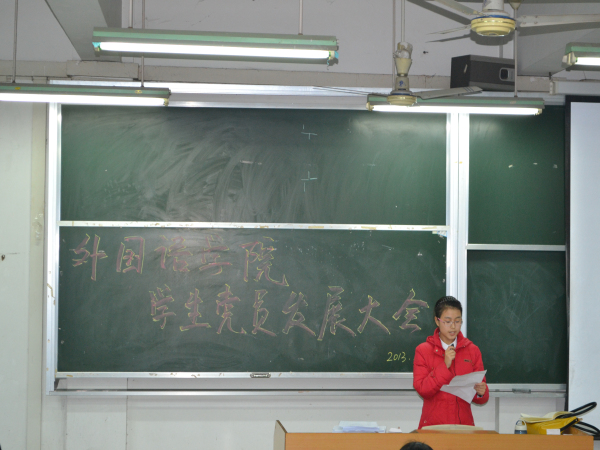 外国语学院
学生党员发展大会
2013.